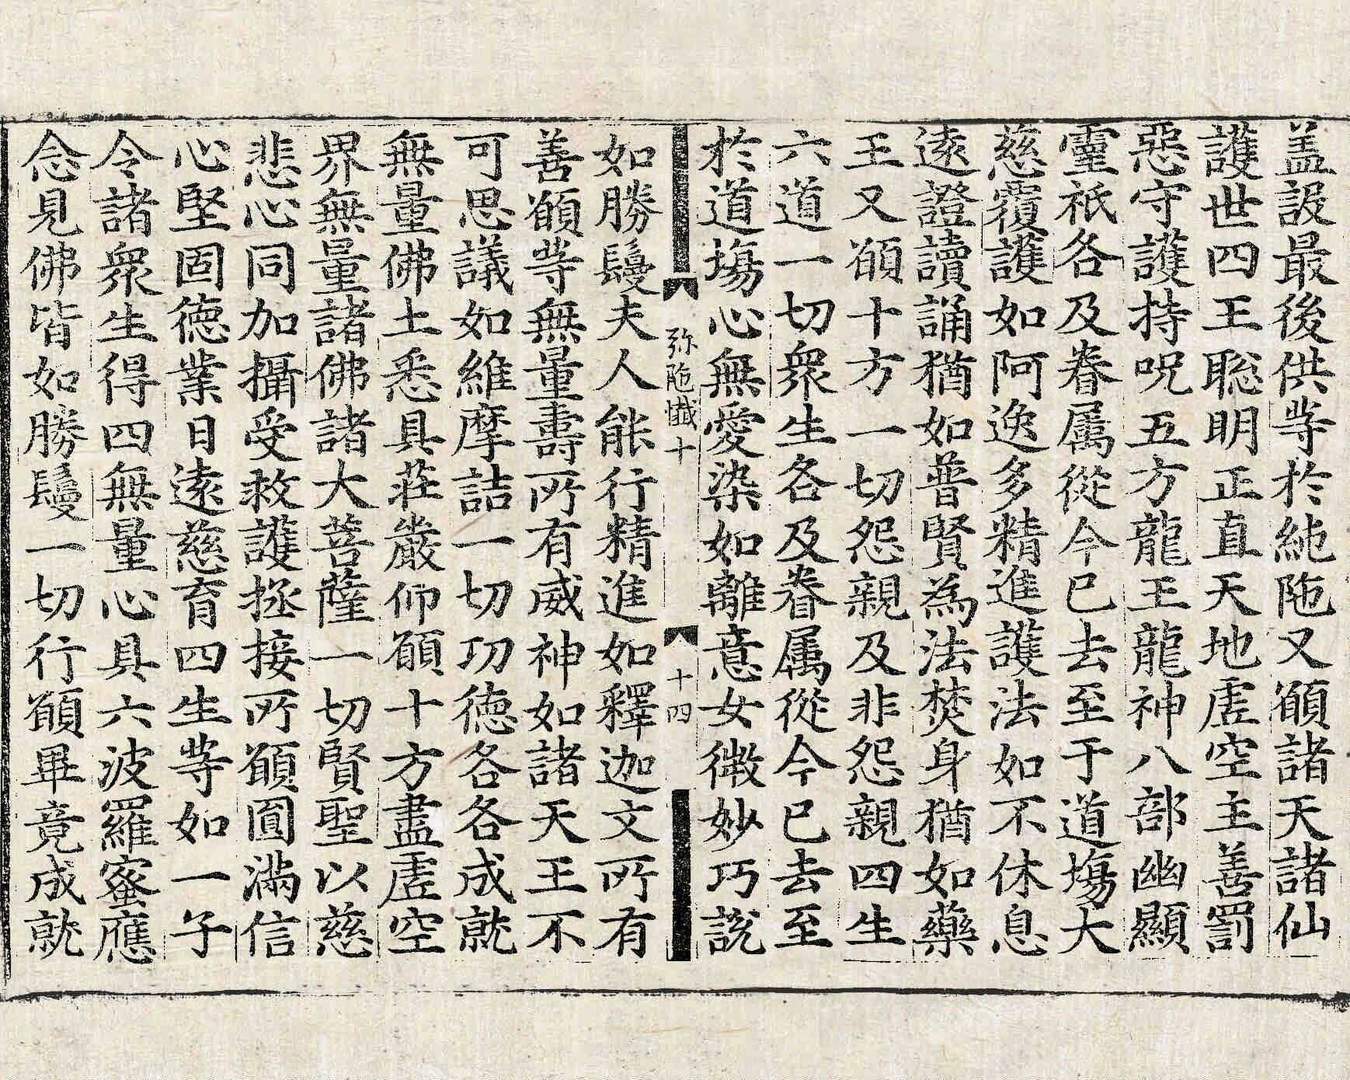 盖設最後供等於純陁又願諸天諸仙
護世四王聡明正直天地虛空主善罰
惡守護持呪五方龍王龍神八部幽顯
靈祇各及眷属從今已去至于道塲大
慈覆護如阿逸多精進護法如不休息
遠證讀誦猶如普賢為法焚身猶如藥
王又願十方一切怨親及非怨親四生
六道一切衆生各及眷属從今已去至
於道塲心無愛染如離意女微妙巧說
弥陁懺十
十四
如勝鬘夫人能行精進如釋迦文所有
善願等無量壽所有威神如諸天王不
可思議如維摩詰一切功德各各成就
無量佛土悉具莊嚴仰願十方盡虛空
界無量諸佛諸大菩薩一切賢聖以慈
悲心同加攝受救護拯接所願圓滿信
心堅固德業日遠慈育四生等如一子
令諸衆生得四無量心具六波羅蜜應
念見佛皆如勝鬘一切行願畢竟成就